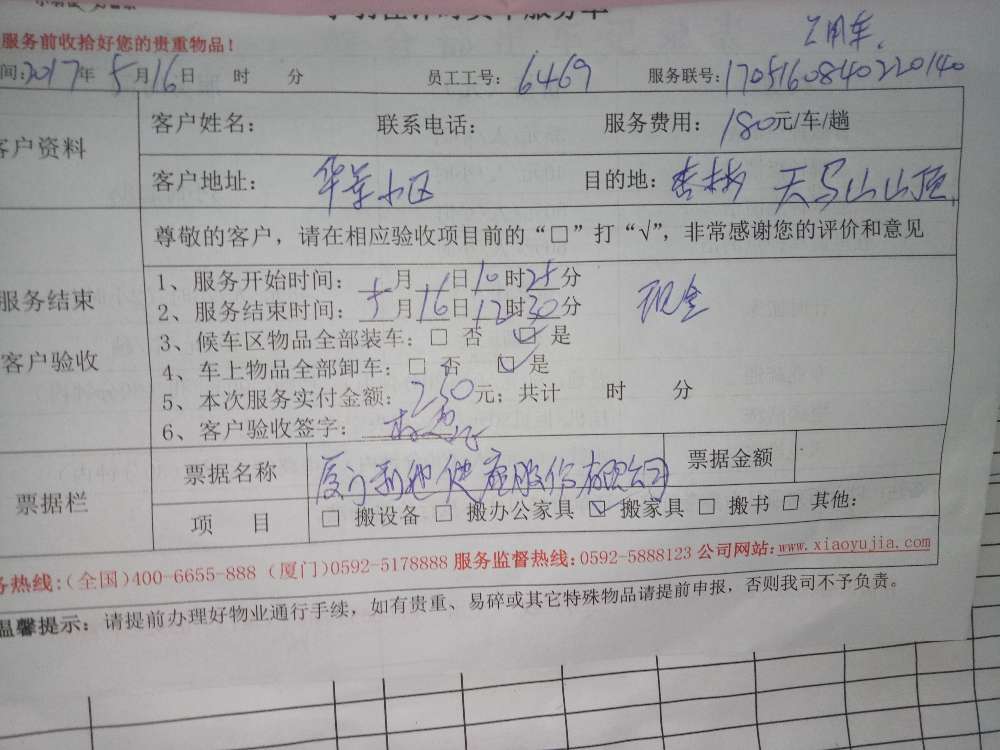 服务前收拾好您的贵重物品！
2用车.
间:2017年 5月16日 时 分 员工工号: 6469 服务联号: 1705160840220140
客户资料
客户姓名： 联系电话： 服务费用：180元/车/趟
客户地址： 小区 目的地：杏林 天马山山顶.
尊敬的客户，请在相应验收项目前的“□”打“√”，非常感谢您的评价和意见
服务结束
客户验收
1、服务开始时间：5月16日10时25分
2、服务结束时间：5月16日12时30分 现金
3、候车区物品全部装车：□ 否 ☑ 是
4、车上物品全部卸车：□ 否 ☑ 是
5、本次服务实付金额：250元；共计 时 分
6、客户验收签字：
票据栏
票据名称 厦门 健康股份有限公司 票据金额
项 目 □ 搬设备 □ 搬办公家具 ☑ 搬家具 □ 搬书 □ 其他：
务热线:(全国)400-6655-888 (厦门)0592-5178888 服务监督热线:0592-5888123 公司网站:www.xiaoyujia.com
温馨提示：请提前办理好物业通行手续，如有贵重、易碎或其它特殊物品请提前申报，否则我司不予负责。